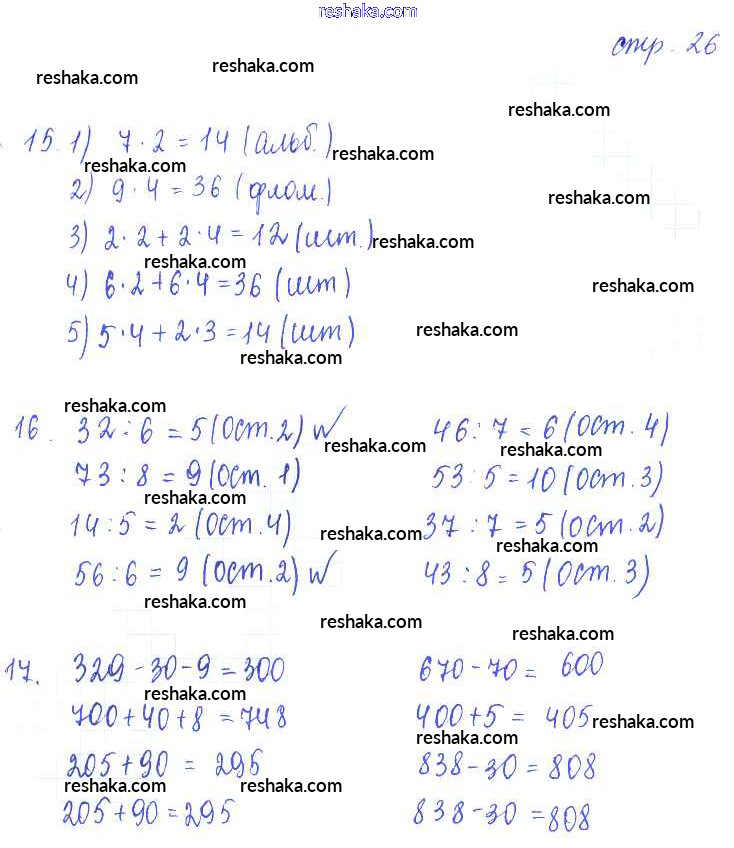 reshaka.com
стр. 26
reshaka.com
reshaka.com
reshaka.com
15. 1) 7·2=14 (альб.)
reshaka.com
reshaka.com
2) 9·4=36 (флом.)
reshaka.com
3) 2·2+2·4=12 (шт.)
reshaka.com
reshaka.com
4) 6·2+6·4=36 (шт)
reshaka.com
5) 5·4+2·3=14 (шт)
reshaka.com
reshaka.com
reshaka.com
16. 32:6=5(Ост.2) √ 46:7=6(Ост.4)
reshaka.com
reshaka.com
73:8=9(Ост.1) 53:5=10(Ост.3)
reshaka.com
14:5=2(Ост.4) 37:7=5(Ост.2)
reshaka.com
reshaka.com
56:6=9(Ост.2) √ 43:8=5(Ост.3)
reshaka.com
reshaka.com
reshaka.com
17. 329-30-9=300 670-70=600
reshaka.com
700+40+8=748 400+5=405
reshaka.com
reshaka.com
205+90=295 838-30=808
reshaka.com
reshaka.com
205+90=295 838-30=808